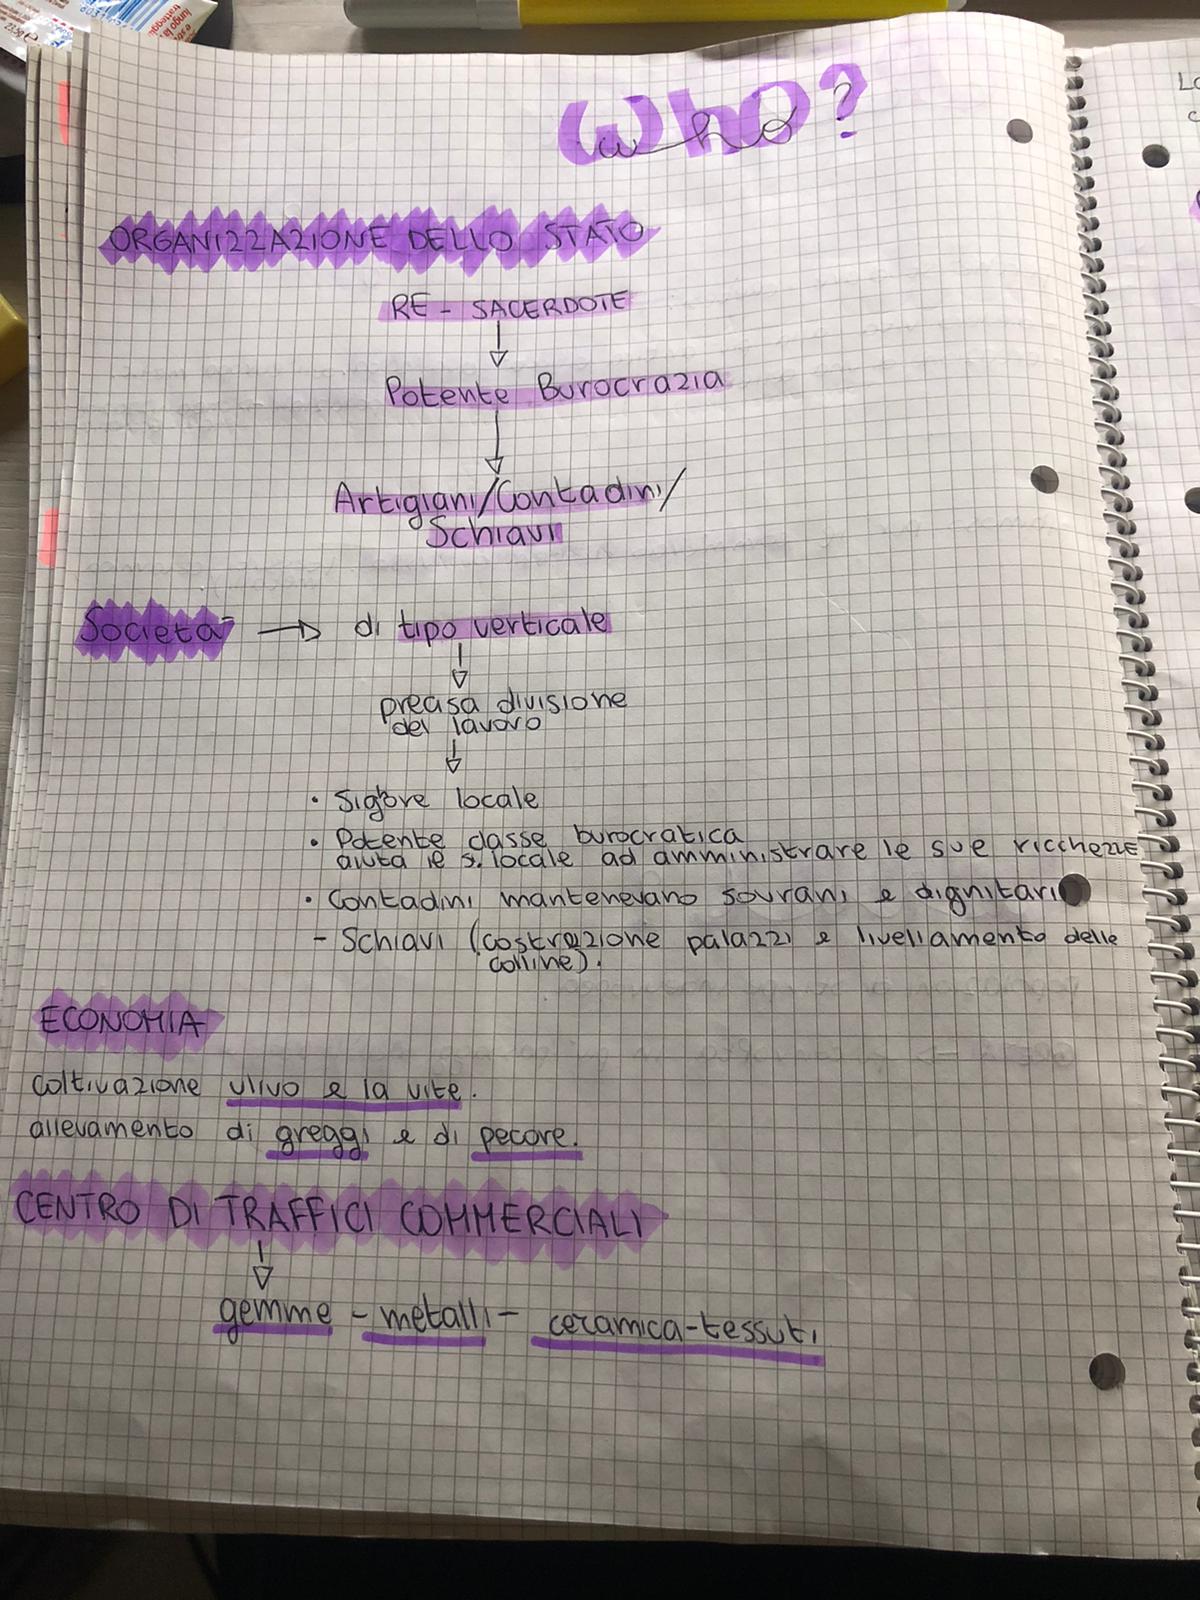 who?
ORGANIZZAZIONE DELLO STATO
RE - SACERDOTE
Potente Burocrazia
Artigiani/Contadini/
Schiavi
Società → di tipo verticale
precisa divisione
del lavoro
• Signore locale
• Potente classe burocratica
aiuta le s. locale ad amministrare le sue ricchezze
• Contadini mantenevano sovrani e dignitari
- Schiavi (costruzione palazzi e livellamento delle
colline).
ECONOMIA
coltivazione ulivo e la vite.
allevamento di greggi e di pecore.
CENTRO DI TRAFFICI COMMERCIALI
gemme - metalli - ceramica-tessuti